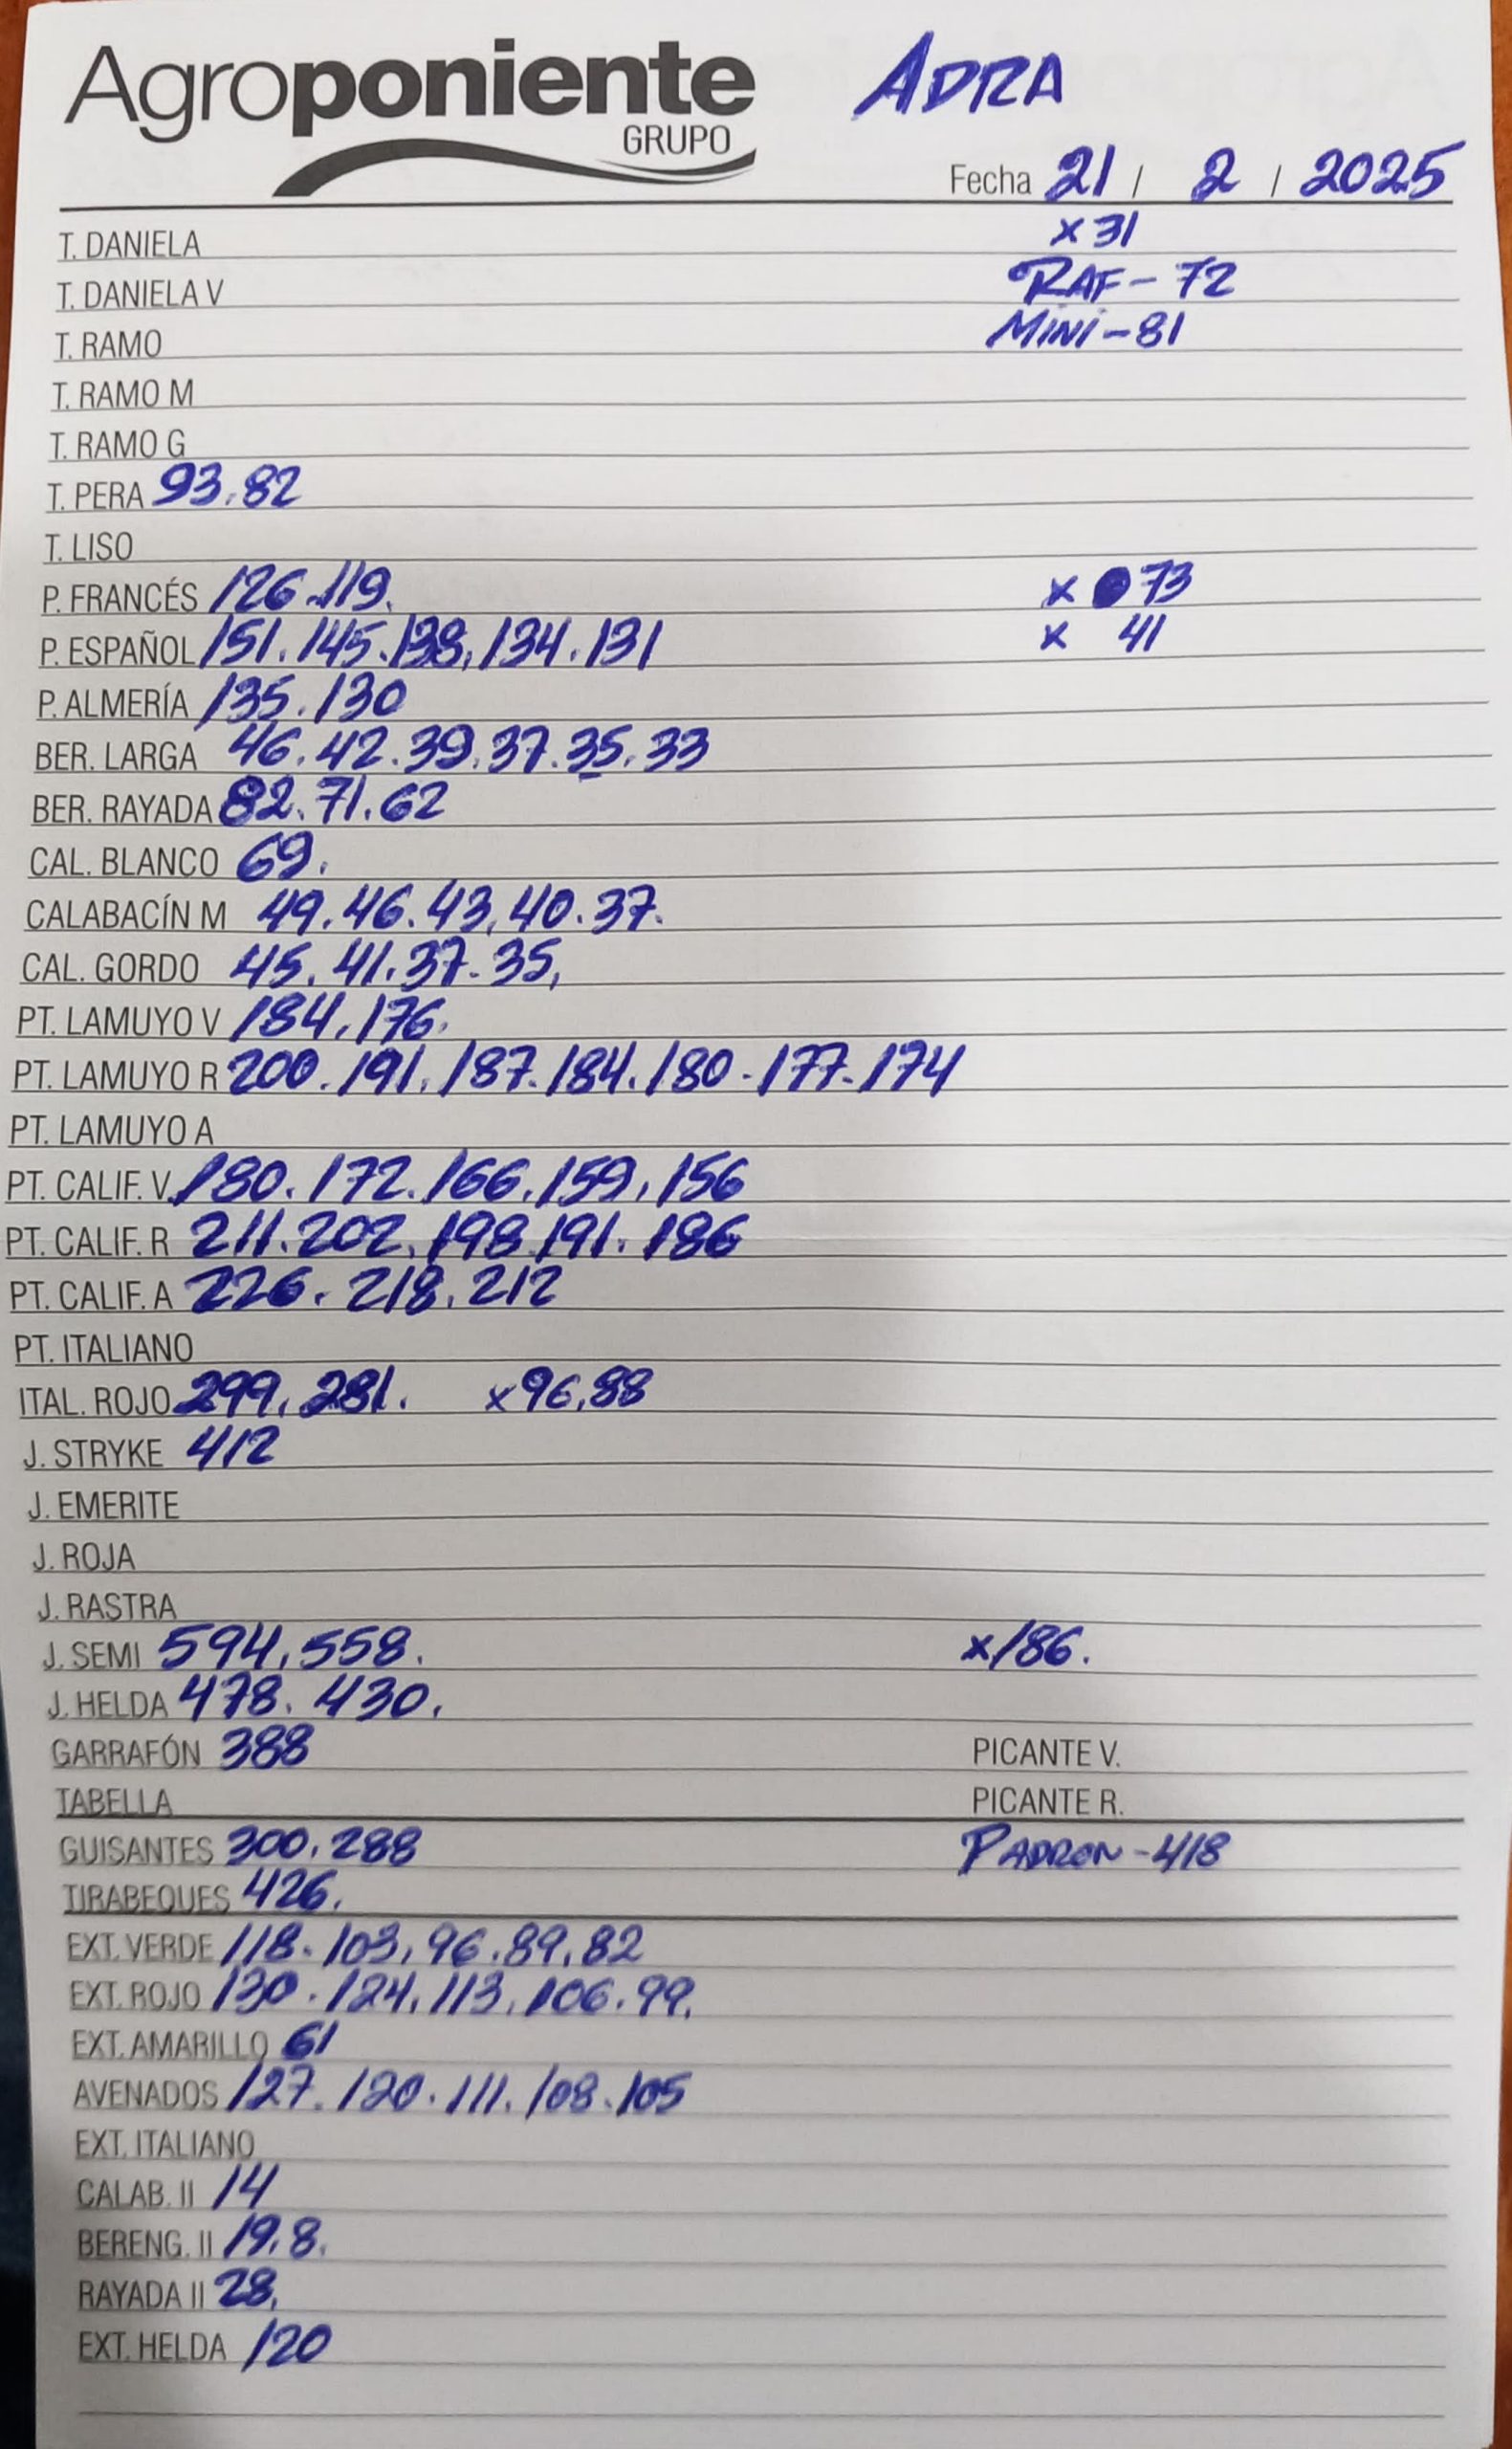 Agroponiente ADRA
GRUPO
Fecha 21 / 2 / 2025
T. DANIELA x 31
T. DANIELA V RAF - 72
T. RAMO MINI - 81
T. RAMO M
T. RAMO G
T. PERA 93.82
T. LISO
P. FRANCÉS 126.119. x 73
P. ESPAÑOL 151.145.138.134.131 x 41
P. ALMERÍA 135.130
BER. LARGA 46.42.39.37.35.33
BER. RAYADA 82.71.62
CAL. BLANCO 69.
CALABACÍN M 49.46.43.40.37.
CAL. GORDO 45.41.37.35,
PT. LAMUYO V 184.176.
PT. LAMUYO R 200.191.187.184.180.177.174
PT. LAMUYO A
PT. CALIF. V. 180.172.166.159.156
PT. CALIF. R 211.202.198.191.186
PT. CALIF. A 226.218.212
PT. ITALIANO
ITAL. ROJO 299.281. x96.88
J. STRYKE 412
J. EMERITE
J. ROJA
J. RASTRA
J. SEMI 594,558. x186.
J. HELDA 478.430.
GARRAFÓN 388 PICANTE V.
TABELLA PICANTE R.
GUISANTES 300.288 PADRON - 418
TIRABEQUES 426.
EXT. VERDE 118.103,96.89.82
EXT. ROJO 130.124.113.106.99.
EXT. AMARILLO 61
AVENADOS 127.120.111.108.105
EXT. ITALIANO
CALAB. II 14
BERENG. II 19.8.
RAYADA II 28,
EXT. HELDA 120